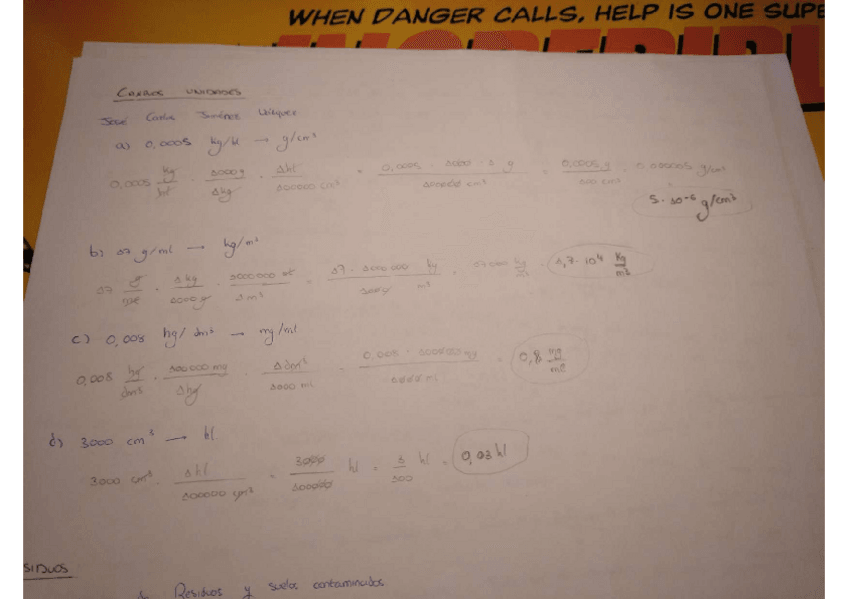 WHEN DANGER CALLS, HELP IS ONE SUPE
CAMBIOS UNIDADES
José Carlos Jiménez
a) 0,0005 kg/hl → g/cm³
0,0005 kg/hl · 1000 g/1 kg · 1 hl/100000 cm³ = 0,0005 · 1000 · 1 g/100000 cm³ = 0,0005 g/100 cm³ = 0,000005 g/cm³
5 · 10-6 g/cm³
b) 17 g/ml → kg/m³
17 g/ml · 1 kg/1000 g · 1000 000 ml/1 m³ = 17 · 1000 000 kg/1000 m³ = 17000 kg/m³ = 1,7 · 10⁴ Kg/m³
c) 0,008 hg/dm³ → mg/ml
0,008 hg/dm³ · 100 000 mg/1 hg · 1 dm³/1000 ml = 0,008 · 100000 mg/1000 ml = 0,8 mg/ml
d) 3000 cm³ → hl
3000 cm³ · 1 hl/100000 cm³ = 3000/100000 hl = 3/100 hl = 0,03 hl
SIDUOS
Residuos y suelos contaminados